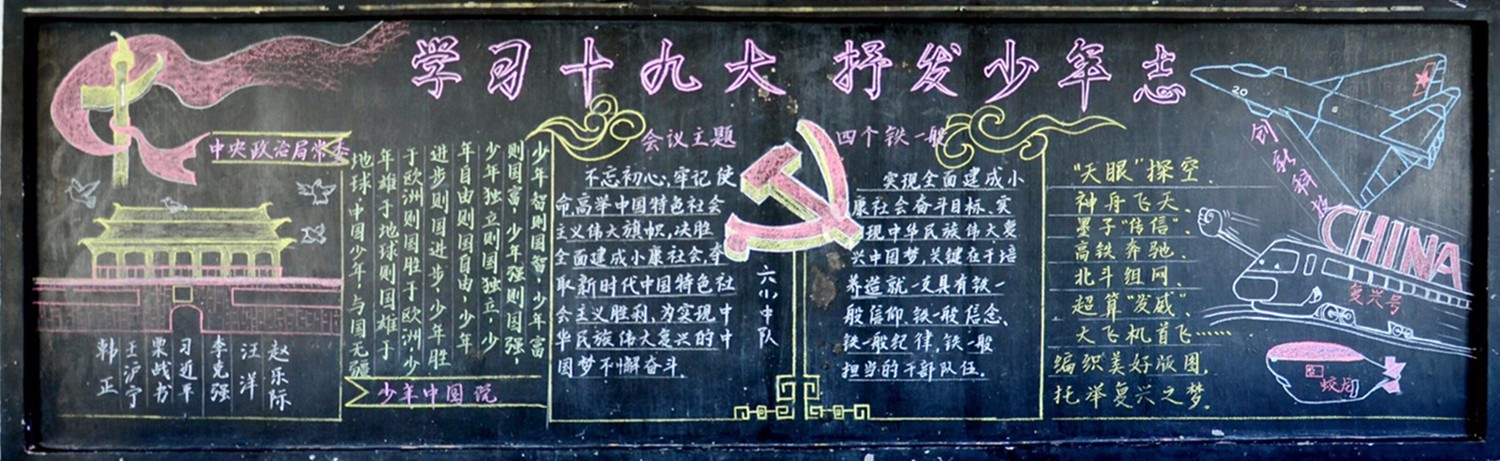 学习十九大 抒发少年志
中央政治局常委
赵乐际
汪洋
李克强
习近平
栗战书
王沪宁
韩正
少年智则国智，少年富
则国富，少年强则国强，
少年独立则国独立，少
年自由则国自由，少年
进步则国进步，少年胜
于欧洲则国胜于欧洲，少
年雄于地球则国雄于
地球，中国少年，与国无疆
少年中国说
会议主题
不忘初心，牢记使
命，高举中国特色社会
主义伟大旗帜，决胜
全面建成小康社会，夺
取新时代中国特色社
会主义胜利，为实现中
华民族伟大复兴的中
国梦不懈奋斗.
六小中队
四个铁一般
实现全面建成小
康社会奋斗目标、实
现中华民族伟大复
兴中国梦，关键在于培
养造就一支具有铁一
般信仰、铁一般信念、
铁一般纪律，铁一般
担当的干部队伍.
"天眼"探空、
神舟飞天、
墨子"传信"、
高铁奔驰、
北斗组网、
超算"发威"、
大飞机首飞……
编织美好版图，
托举复兴之梦.
20
创新科技
CHINA
复兴号
蛟龙